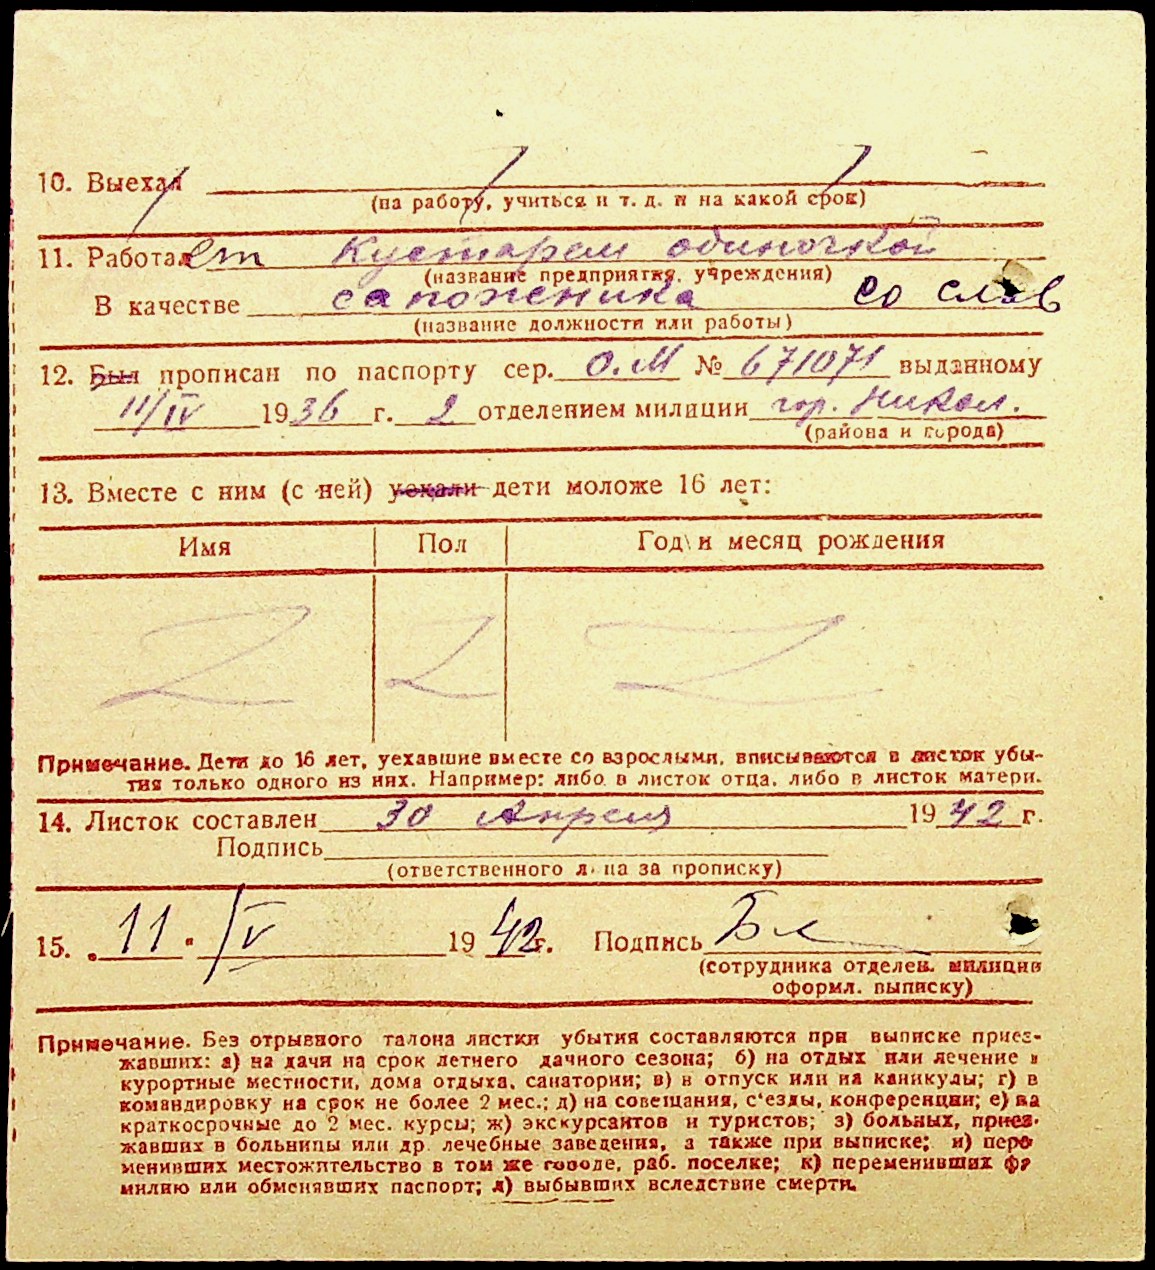 10. Выехал
(на работу, учиться и т. д. и на какой срок)
11. Работает Кустарем одиночкой
(название предприятия, учреждения)
В качестве сапожника со слов
(название должности или работы)
12. Был прописан по паспорту сер. О.М № 671071 выданному
11/IV 1936 г. 2 отделением милиции гор. Никол.
(района и города)
13. Вместе с ним (с ней) уехали дети моложе 16 лет:
Имя Пол Год и месяц рождения
Примечание. Дети до 16 лет, уехавшие вместе со взрослыми, вписываются в листок убы-
тия только одного из них. Например: либо в листок отца, либо в листок матери.
14. Листок составлен 30 Апреля 1942 г.
Подпись
(ответственного лица за прописку)
15. „11" /V 1942 г. Подпись
(сотрудника отделен. милиции
оформл. выписку)
Примечание. Без отрывного талона листки убытия составляются при выписке приез-
жавших: а) на дачи на срок летнего дачного сезона; б) на отдых или лечение в
курортные местности, дома отдыха, санатории; в) в отпуск или на каникулы; г) в
командировку на срок не более 2 мес.; д) на совещания, с'езды, конференции; е) на
краткосрочные до 2 мес. курсы; ж) экскурсантов и туристов; з) больных, приез-
жавших в больницы или др. лечебные заведения, а также при выписке; и) пере
менивших местожительство в том же городе, раб. поселке; к) переменивших фа
милию или обменявших паспорт; л) выбывших вследствие смерти.